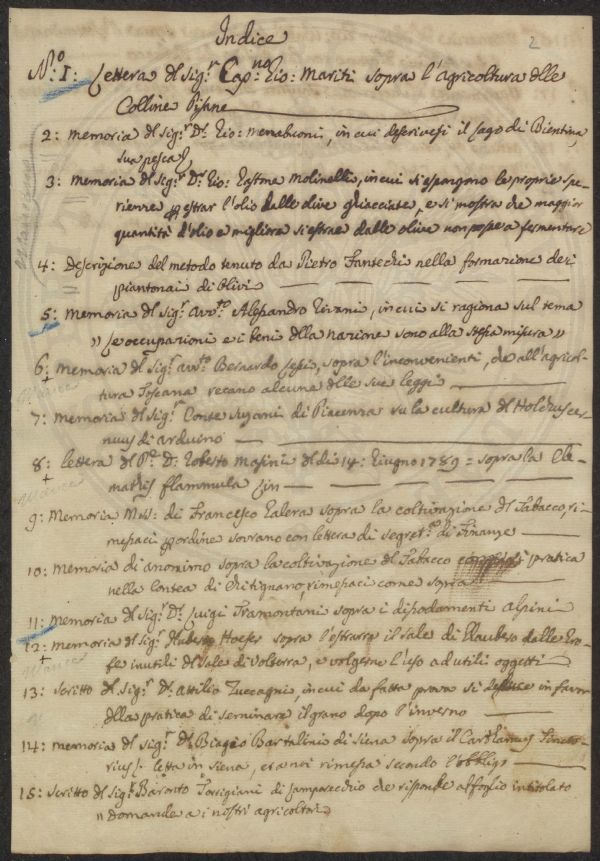 Indice
2
N.º 1: Lettera dl sig.r Cap.no Gio: Mariti sopra l'agricoltura dlle
Colline Pisane
2: memoria dl sig.r D.r Gio: Menabuoni, in cui descrivesi il Lago di Bientina,
sua pesca &
3: memoria dl sig.r D.r Gio: Molinelli, in cui si espongono le proprie spe-
rienze estrar l'olio dalle olive ghiacciate, e si mostra che maggior
quantità d'olio e migliore si estrae dalle olive non poste a fermentare
4: Descrizione del metodo tenuto da Pietro Fantechi nella formazione dei
piantonai di olivi
5: memoria dl sig.r avv.to Alessandro Rivani, in cui si ragiona sul tema
„ Le occupazioni e i beni dlla nazione sono alla stessa misura „
6: memoria dl sig.r avv.to Bernardo Lessi, sopra l'inconvenienti, che all'agricol-
tura Toscana recano alcune dlle sue leggi
7: memoria dl sig.r Conte Suzani di Piacenza su la cultura dl Holcus cer-
nuus di arduino
8: lettera dl P.e D. Roberto Masini dl dì 14: Giugno 1789 = sopra la Cle-
matis flammula Lin
9: Memoria Mss: di Francesco Galera sopra la coltivazione dl Tabacco, ri-
messaci ordine sovrano con lettera di segret.o di Finanze
10: Memoria di anonimo sopra la coltivazione dl Tabacco pratica
nella Contea di Chitignano, rimessaci come sopra
11: memoria dl sig.r D.r Luigi Tramontani sopra i disodamenti alpini
12: memoria dl sig.r Huberto Hoefer sopra l'estrarre il sale di Glaubero dalle
inutili dl sale di Volterra, e volgerne l'uso ad utili oggetti
13: scritto dl sig.r D.r Attilio Zuccagni, in cui da fatta prova si deduce in favor
dlla pratica di seminare il grano dopo l'inverno
14: memoria dl sig.r D.r Biagio Bartalini di Siena sopra il Carthamus Tincto-
rius L. letta in Siena, e a noi rimessa secondo l'obbligo
15: scritto dl sig.r Baronto Torrigiani di Lamporecchio che risponde al foglio intitolato
„ Domande a i nostri agricoltori